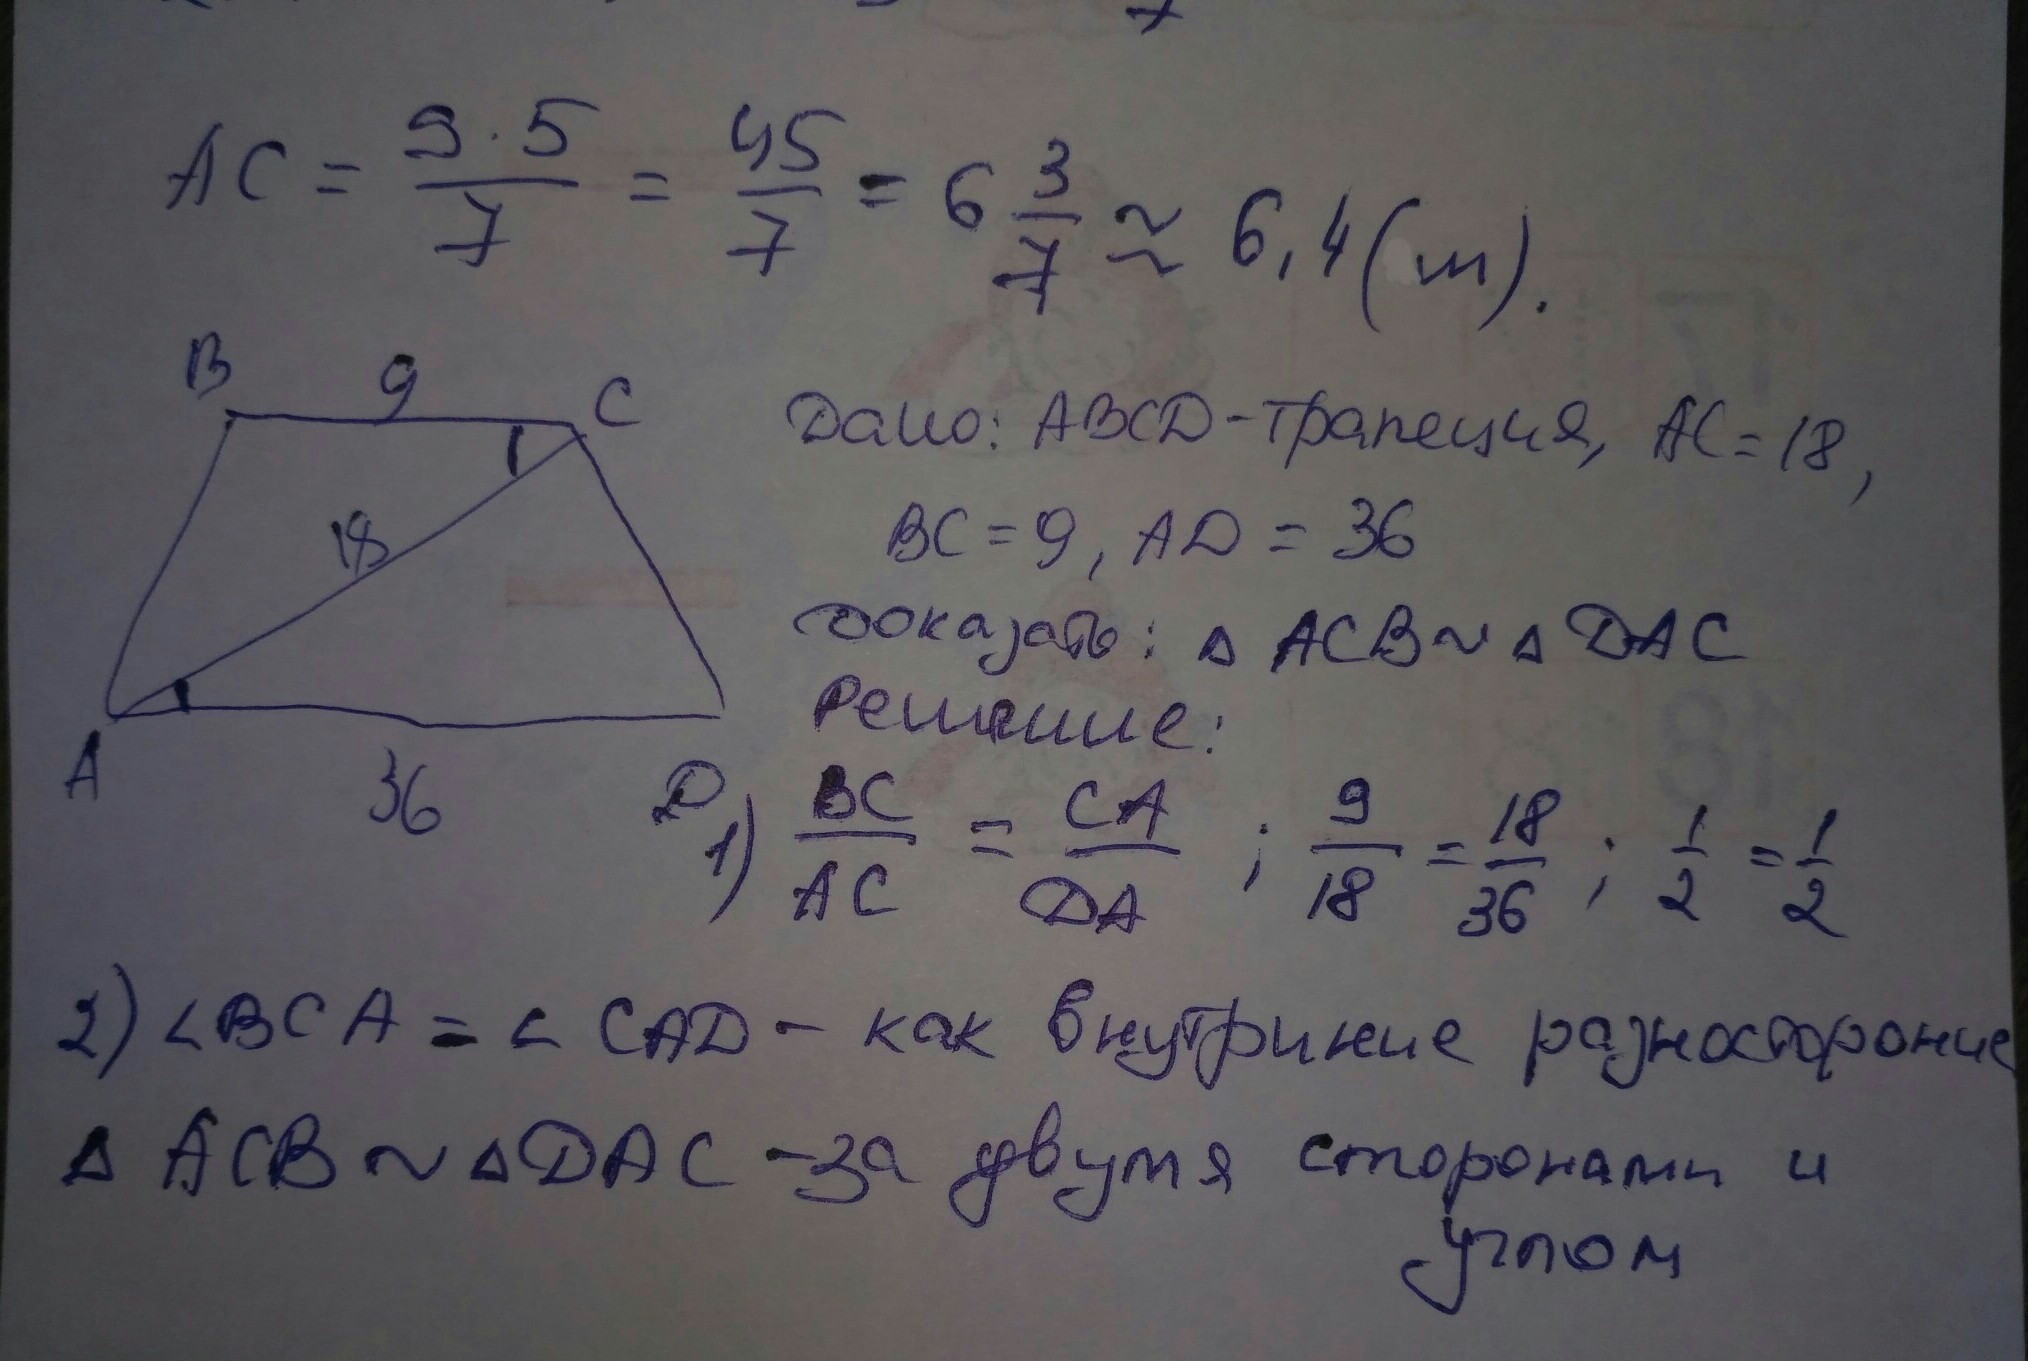 AC = 9·5/7 = 45/7 = 6 3/7 ≈ 6,4 (m).
B 9 C
18
A 36 D
Дано: ABCD - трапеция, AC = 18,
BC = 9, AD = 36
Доказать: Δ ACB ~ Δ DAC
Решение:
1) BC/AC = CA/DA ; 9/18 = 18/36 ; 1/2 = 1/2
2) ∠BCA = ∠CAD - как внутрикие разностороние
Δ ACB ~ Δ DAC - за двумя сторонами и
углом